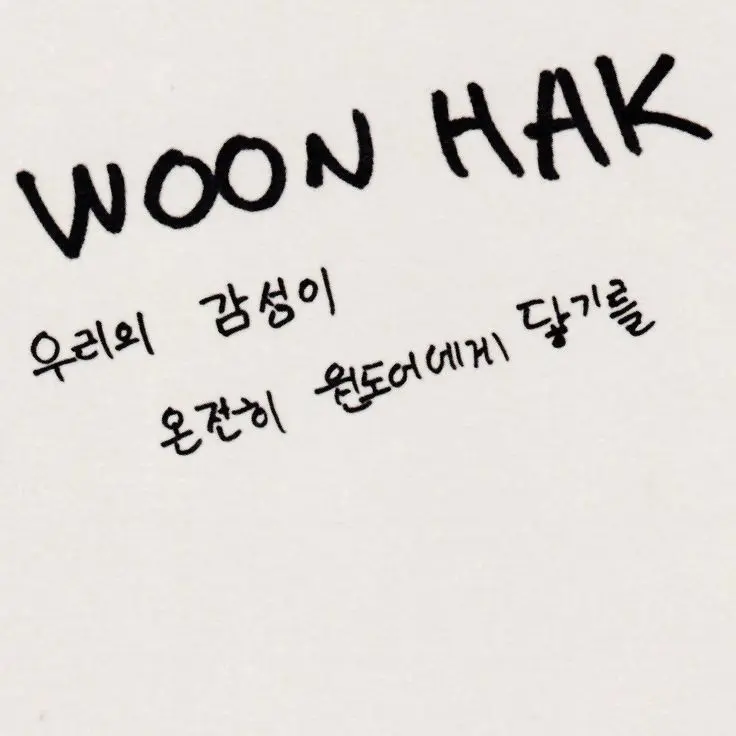 WOON HAK
우리의 감성이
온전히 원도어에게 닿기를